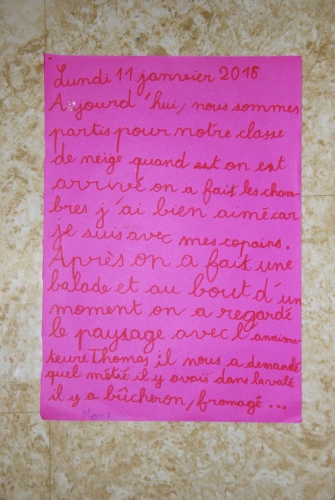 Lundi 11 janvrier 2016
Aujourd'hui, nous sommes
partis pour notre classe
de neige quand est on est
arrivé on a fait les cham-
bres j'ai bien aimé car
je suis avec mes copains.
Après on a fait une
balade et au bout d'un
moment on a regardé
le paysage avec l'annima
teure Thomas il nous a demandé
quel métié il y avais dans la valé
il y a bûcheron, fromagé ...